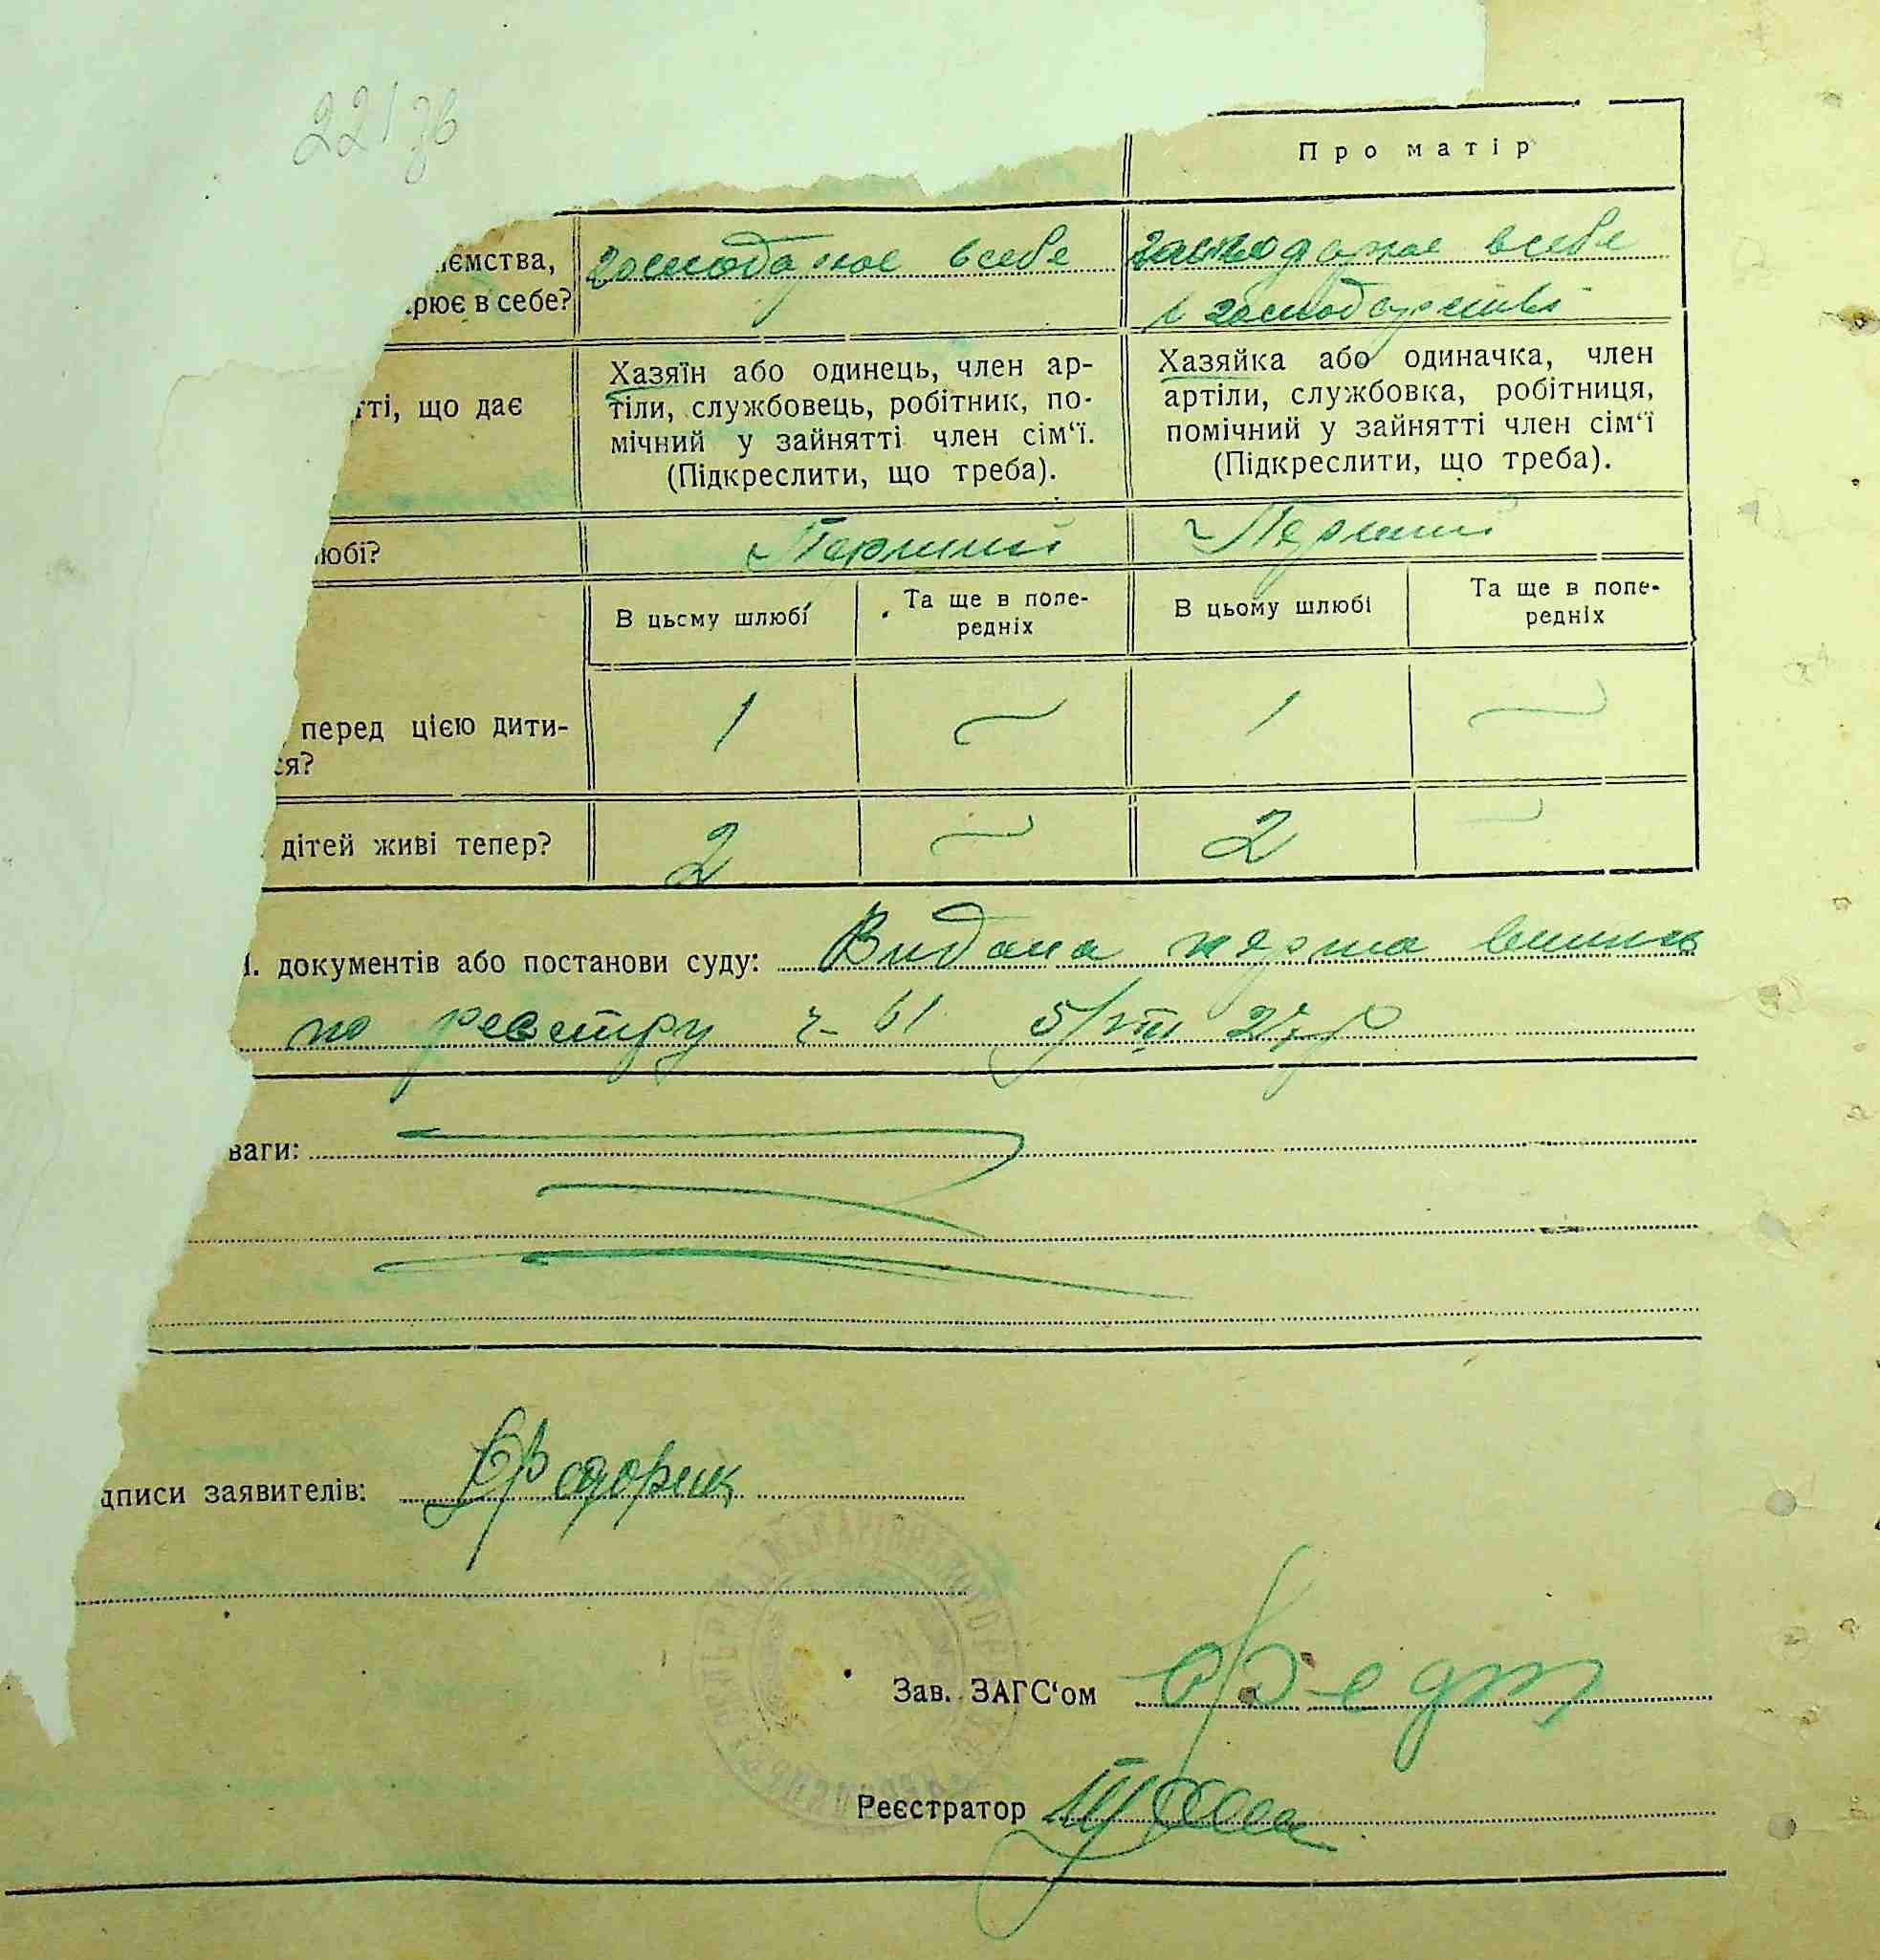 221 зв
Про матір
ємства, господарює в себе господарює в себе
рює в себе? в господарстві
Хазяїн або одинець, член ар- Хазяйка або одиначка, член
тті, що дає тіли, службовець, робітник, по- артіли, службовка, робітниця,
мічний у зайнятті член сім‘ї. помічний у зайнятті член сім‘ї
(Підкреслити, що треба). (Підкреслити, що треба).
любі? Перший Перший
В цьому шлюбі Та ще в попе- В цьому шлюбі Та ще в попе-
редніх редніх
перед цією дити- 1 1
ся?
дітей живі тепер? 2 2
документів або постанови суду: Видана перша випись
по реєстру ч 61 5/VIII 27 р
ваги:
дписи заявителів:
Зав. ЗАГС‘ом
Реєстратор